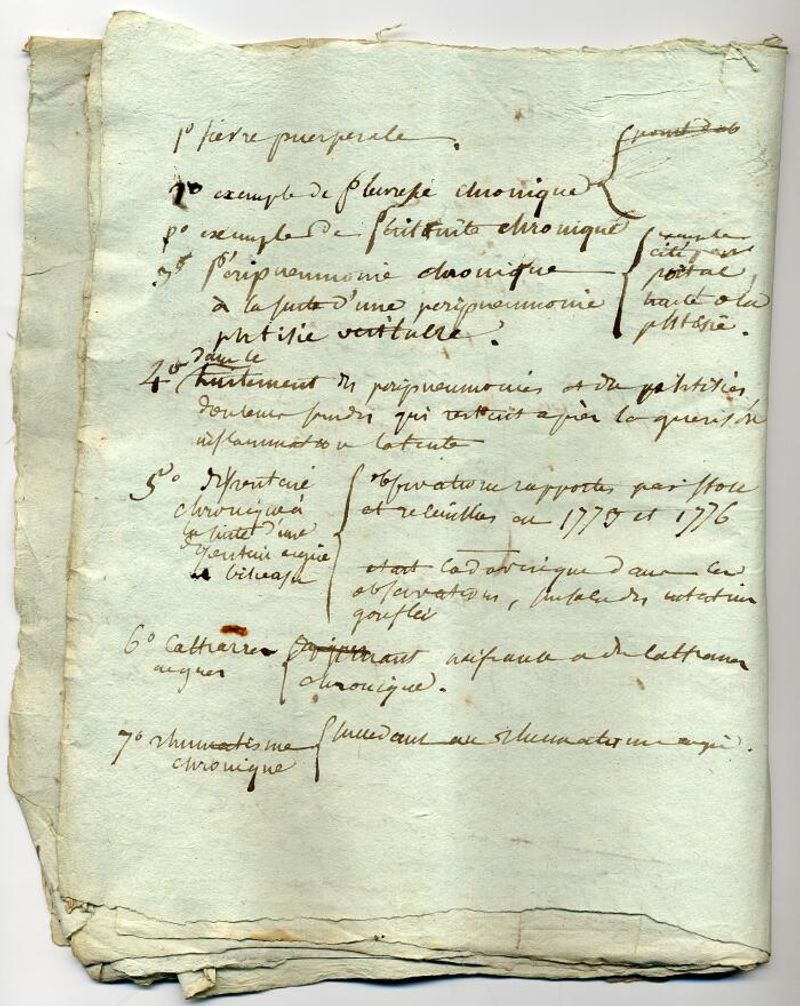 1º fievre puerperale.
2º exemple de pleuresie chronique
exemple de chronique
3º peripneumonie chronique
à la suite d'une peripneumonie
phtisie veritable.
exemple
cité par
portal
traité de la
phtisie.
dans le
4º traitement des peripneumonies et des phtisies
douleurs sourdes qui restent apier la guerison
inflammation latente
5º dysenterie
chronique à
la suite d'une
dysenterie aigue
bilieuse
observations rapportes par stoll
et recueillies en 1775 et 1776
etat cadaverique dans les
observations, intestins
gonfles
6º Cattarres
aigues
de Cattarres
chronique.
7º rhumatisme
chronique
succedant au rhumatisme aigu.